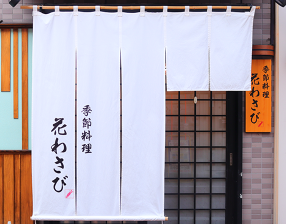 季節料理
花わさび
季節料理
花わさび